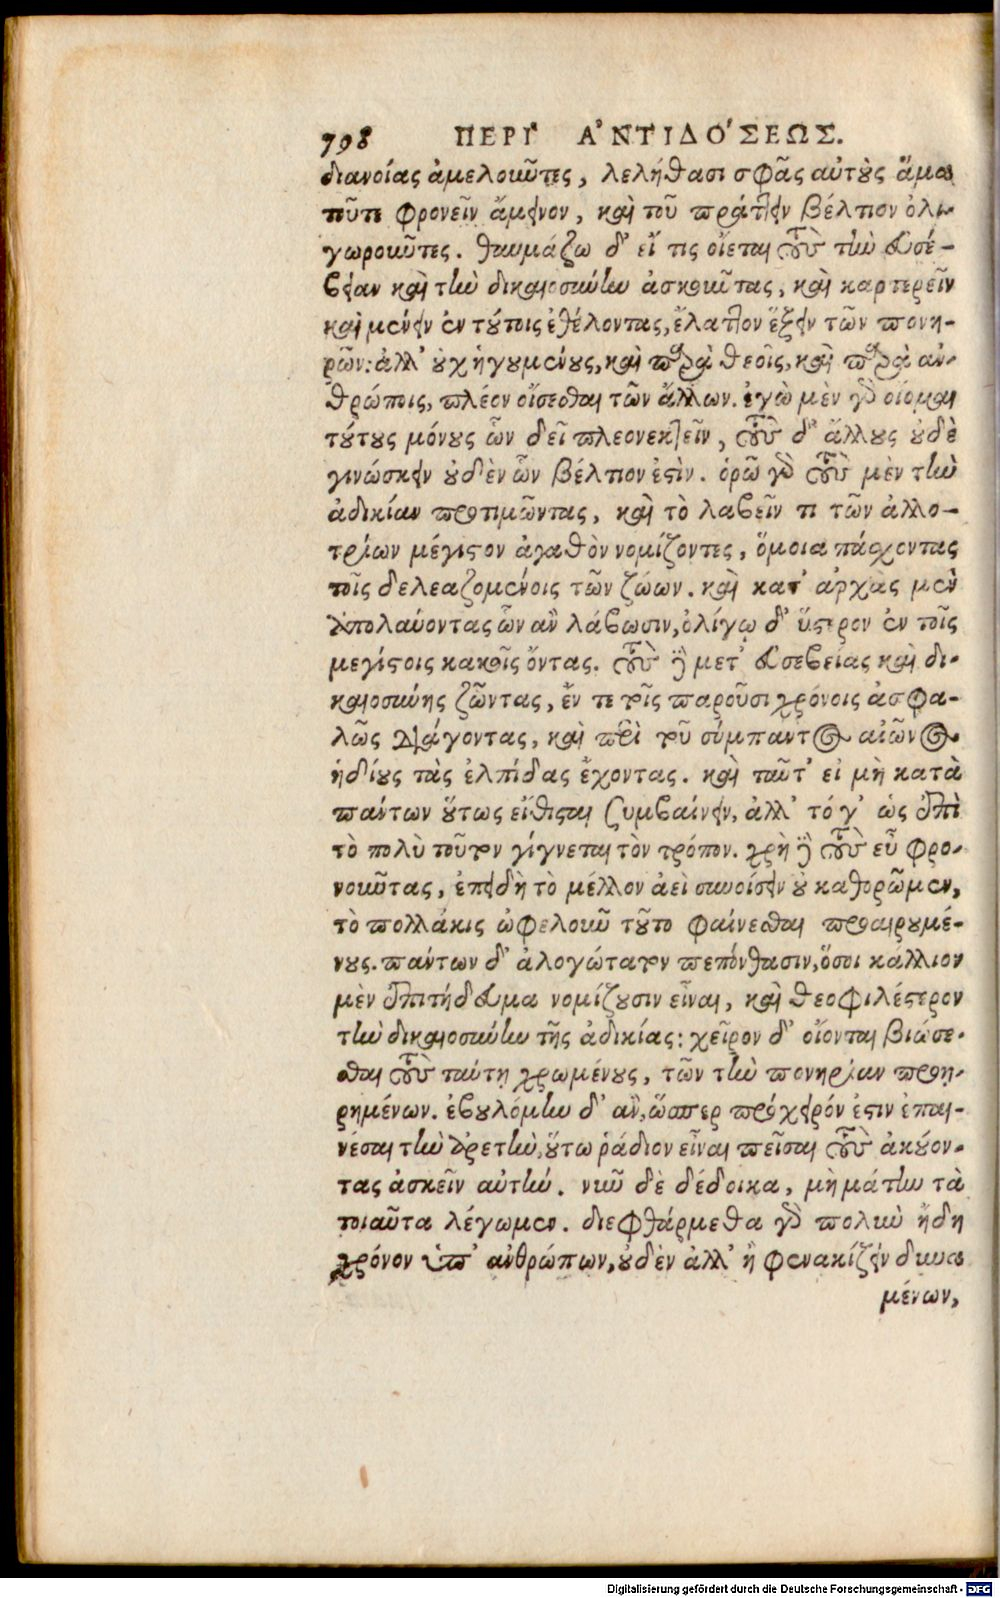 798 ΠΕΡΙ' Α'ΝΤΙΔΟ'ΣΕΩΣ.
διανοίας ἀμελοῦντες, λελήθασι σφᾶς αὐτοὺς ἅμα
τοῦτε φρονεῖν ἄμεινον, καὶ τοῦ πράττειν βέλτιον ὀλι-
γωροῦντες. θαυμάζω δ' εἴ τις οἴεται τοὺς τὴν εὐσέ-
βειαν καὶ τὴν δικαιοσύνην ἀσκοῦντας, καὶ καρτερεῖν
καὶ μένειν ἐν τούτοις ἐθέλοντας, ἔλαττον ἕξειν τῶν πονη-
ρῶν: ἀλλ' οὐχ ἡγουμένους, καὶ παρὰ θεοῖς, καὶ παρὰ ἀν-
θρώποις, πλέον οἴσεσθαι τῶν ἄλλων. ἐγὼ μὲν γὰρ οἴομαι
τούτους μόνους ὧν δεῖ πλεονεκτεῖν, τοὺς δ' ἄλλους οὐδὲ
γινώσκειν οὐδὲν ὧν βέλτιον ἐστὶν. ὁρῶ γὰρ τοὺς μὲν τὴν
ἀδικίαν προτιμῶντας, καὶ τὸ λαβεῖν τι τῶν ἀλλο-
τρίων μέγιστον ἀγαθὸν νομίζοντες, ὅμοια πάσχοντας
τοῖς δελεαζομένοις τῶν ζώων. καὶ κατ' ἀρχὰς μὲν
ἀπολαύοντας ὧν ἂν λάβωσιν, ὀλίγω δ' ὕστερον ἐν τοῖς
μεγίστοις κακοῖς ὄντας. τοὺς δὲ μετ' εὐσεβείας καὶ δι-
καιοσύνης ζῶντας, ἔν τε τοῖς παροῦσι χρόνοις ἀσφα-
λῶς διάγοντας, καὶ περὶ τοῦ σύμπαντος αἰῶνος
ἡδίους τὰς ἐλπίδας ἔχοντας. καὶ ταῦτ' εἰ μὴ κατὰ
πάντων οὕτως εἴθισται συμβαίνειν, ἀλλ' τό γ' ὡς ἐπὶ
τὸ πολὺ τοῦτον γίγνεται τὸν τρόπον. χρὴ δὲ τοὺς εὖ φρο-
νοῦντας, ἐπειδὴ τὸ μέλλον ἀεὶ συνοίσειν οὐ καθορῶμεν,
τὸ πολλάκις ὠφελοῦν τοῦτο φαίνεσθαι προαιρουμέ-
νους. πάντων δ' ἀλογώτατον πεπόνθασιν, ὅσοι κάλλιον
μὲν ἐπιτήδευμα νομίζουσιν εἶναι, καὶ θεοφιλέστερον
τὴν δικαιοσύνην τῆς ἀδικίας: χεῖρον δ' οἴονται βιώσε-
σθαι τοὺς ταύτη χρωμένους, τῶν τὴν πονηρίαν προη-
ρημένων. ἐβουλόμην δ' ἂν, ὥσπερ πρόχειρόν ἐστιν ἐπαι-
νέσαι τὴν ἀρετὴν, οὕτω ῥάδιον εἶναι πεῖσαι τοὺς ἀκούον-
τας ἀσκεῖν αὐτήν. νῦν δὲ δέδοικα, μὴ μάτην τὰ
τοιαῦτα λέγωμεν. διεφθάρμεθα γὰρ πολὺν ἤδη
χρόνον ὑπ' ἀνθρώπων, οὐδὲν ἀλλ' ἢ φενακίζειν δυνα
μένων,
Digitalisierung gefördert durch die Deutsche Forschungsgemeinschaft - DFG